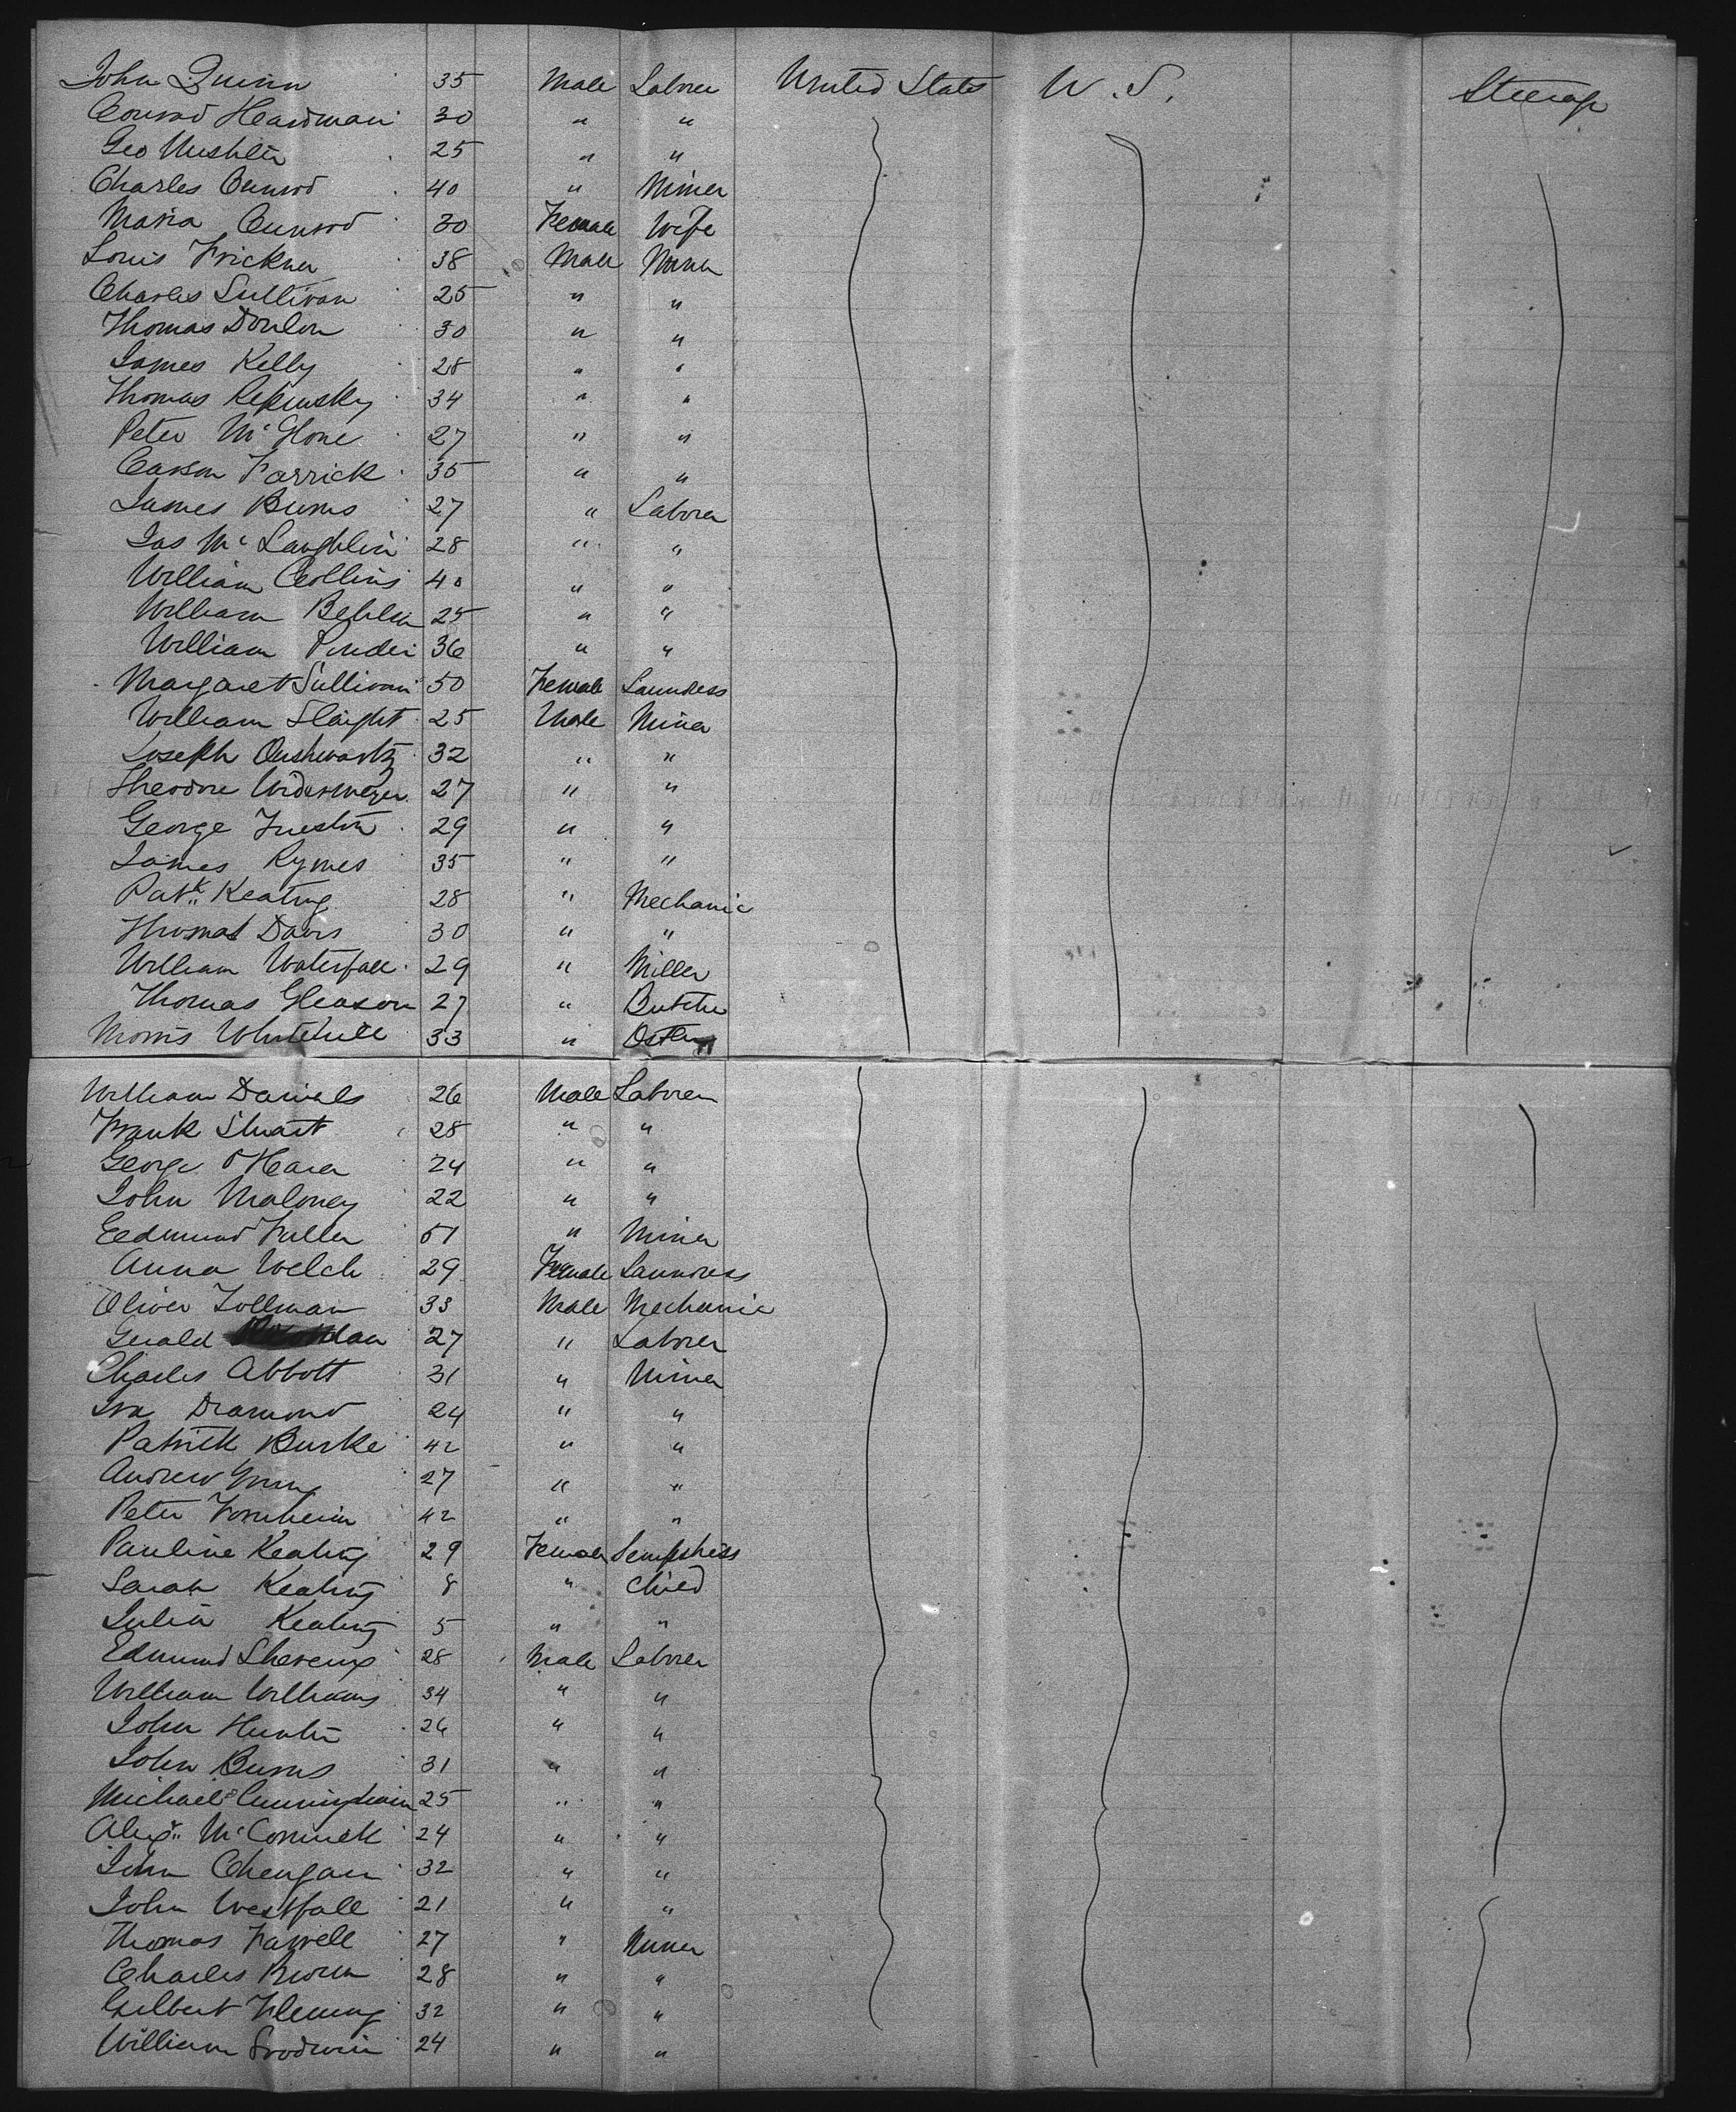 John Quinn 35 Male Laborer United States U. S. Steerage
Conrad Heardman 30 " "
Geo 25 " "
Charles Cunrod 40 " Miner
Maria Cunrod 30 Female Wife
Louis Frickner 38 Male Miner
Charles Sullivan 25 " "
Thomas Donlon 30 " "
James Kelly 28 " "
Thomas Repinsky 34 " "
Peter McGlone 27 " "
Carson Farrick 35 " "
James Burns 27 " Laborer
Jas McLaughlin 28 " "
William Collins 40 " "
William 25 " "
William 36 " "
Margaret Sullivan 50 Female Laundress
William Slaight 25 Male Miner
Joseph 32 " "
Theodore Widersweyer 27 " "
George 29 " "
James Rymes 35 " "
Patk Keating 28 " Mechanic
Thomas Davis 30 " "
William Waterfall 29 " Miller
Thomas Gleason 27 " Butcher
Morris Whitehill 33 "
William Daniels 26 Male Laborer
Frank Stuart 28 " "
George O'Hara 24 " "
John Maloney 22 " "
Eedmund Fuller 51 " Miner
Anna Welch 29 Female Laundress
Oliver Tollman 33 Male Mechanic
Gerald 27 " Laborer
Charles Abbott 31 " Miner
Ira Diamond 24 " "
Patrick Burke 42 " "
Andrew Young 27 " "
Peter Fornheim 42 " "
Pauline Keating 29 Female Sempstress
Sarah Keating 8 " Child
Julia Keating 5 " "
Edmund 28 Male Laborer
William Williams 34 " "
John Hunter 26 " "
John Burns 31 " "
Michael Cunningham 25 " "
Alexr McCormick 24 " "
John 32 " "
John Westfall 21 " "
Thomas Farrell 27 " Miner
Charles Brown 28 " "
Gilbert Fleming 32 " "
William Goodwin 24 " "